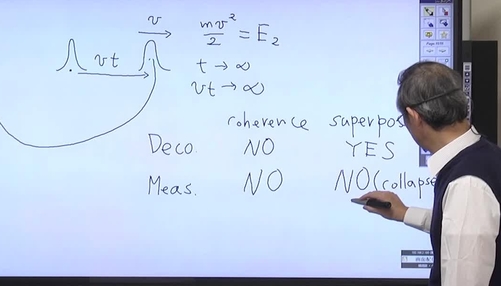 v
mv²/2 = E₂
vt
t → ∞
vt → ∞
coherence superpos
Deco. NO YES
Meas. NO NO (collapse